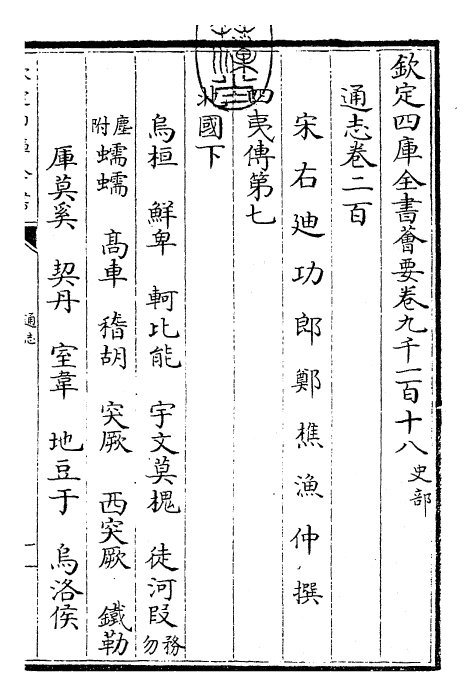 欽定四庫全書薈要卷九千一百十八 史部
通志卷二百
宋右迪功郎鄭樵漁仲撰
四夷傳第七
北國下
烏桓 鮮卑 軻比能 宇文莫槐 徒河段 務勿
塵附 蠕蠕 高車 稽胡 突厥 西突厥 鐵勒
庫莫奚 契丹 室韋 地豆于 烏洛侯
通志